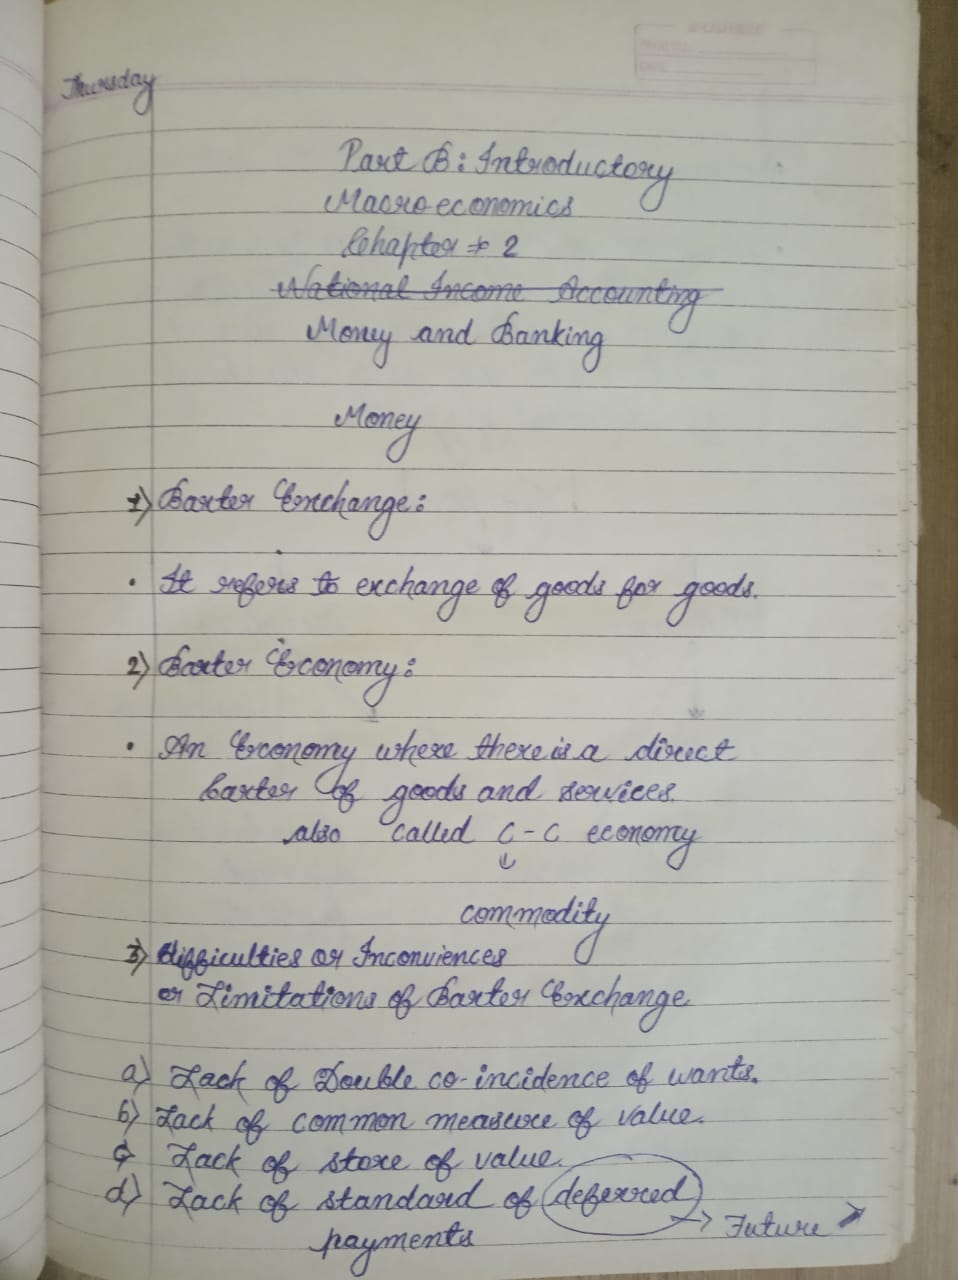 Thursday
Part B: Introductory
Macroeconomics
Chapter → 2
National Income Accounting
Money and Banking
Money
1) Barter Exchange:
• It refers to exchange of goods for goods.
2) Barter Economy:
• An Economy where there is a direct
barter of goods and services.
also called C-C economy
↓
commodity
3) Difficulties or Inconviences
or Limitations of Barter Exchange
a) Lack of Double co-incidence of wants.
b) Lack of common measure of value.
c) Lack of store of value.
d) Lack of standard of deferred
→ Future
payments